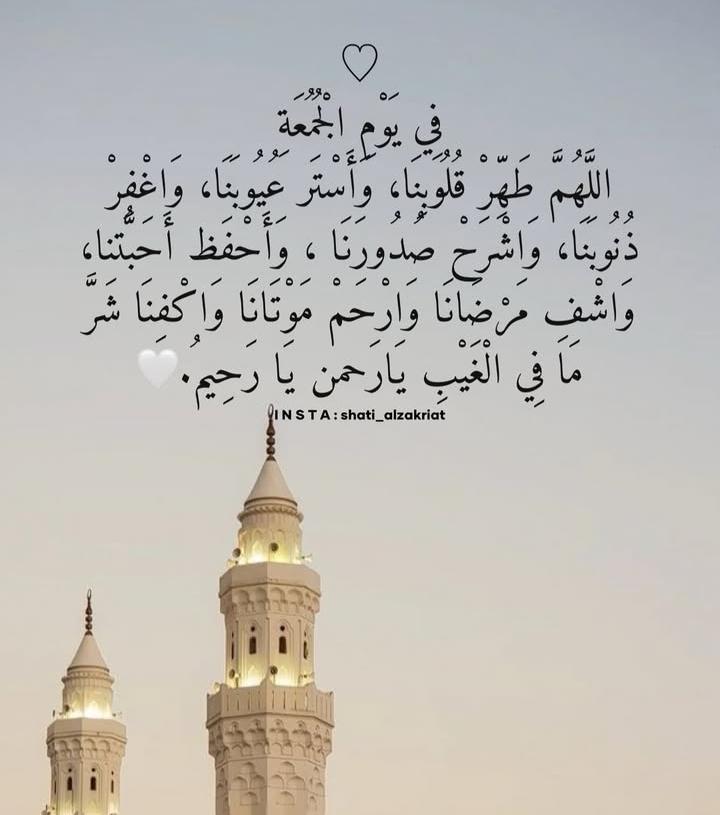 ♡
في يَوْمِ الْجُمُعَةِ
اللَّهُمَّ طَهِّرْ قُلُوبِنَا، وَأَسْتَر عَيُوبنَا، وَاغْفِرْ
ذُنُوبنَا، وَاشْرَحْ صُدُورَنَا ، وَأَحْفَظ أَحَبَّتنا،
وَاشْفِ مَرْضَانَا وَارْحَمْ مَوْتَانَا وَاكْفِنَا شَرَّ
مَا فِي الْغَيْبِ يَارَحمن يَا رَحِيمُ.🤍
I N S T A : shati_alzakriat